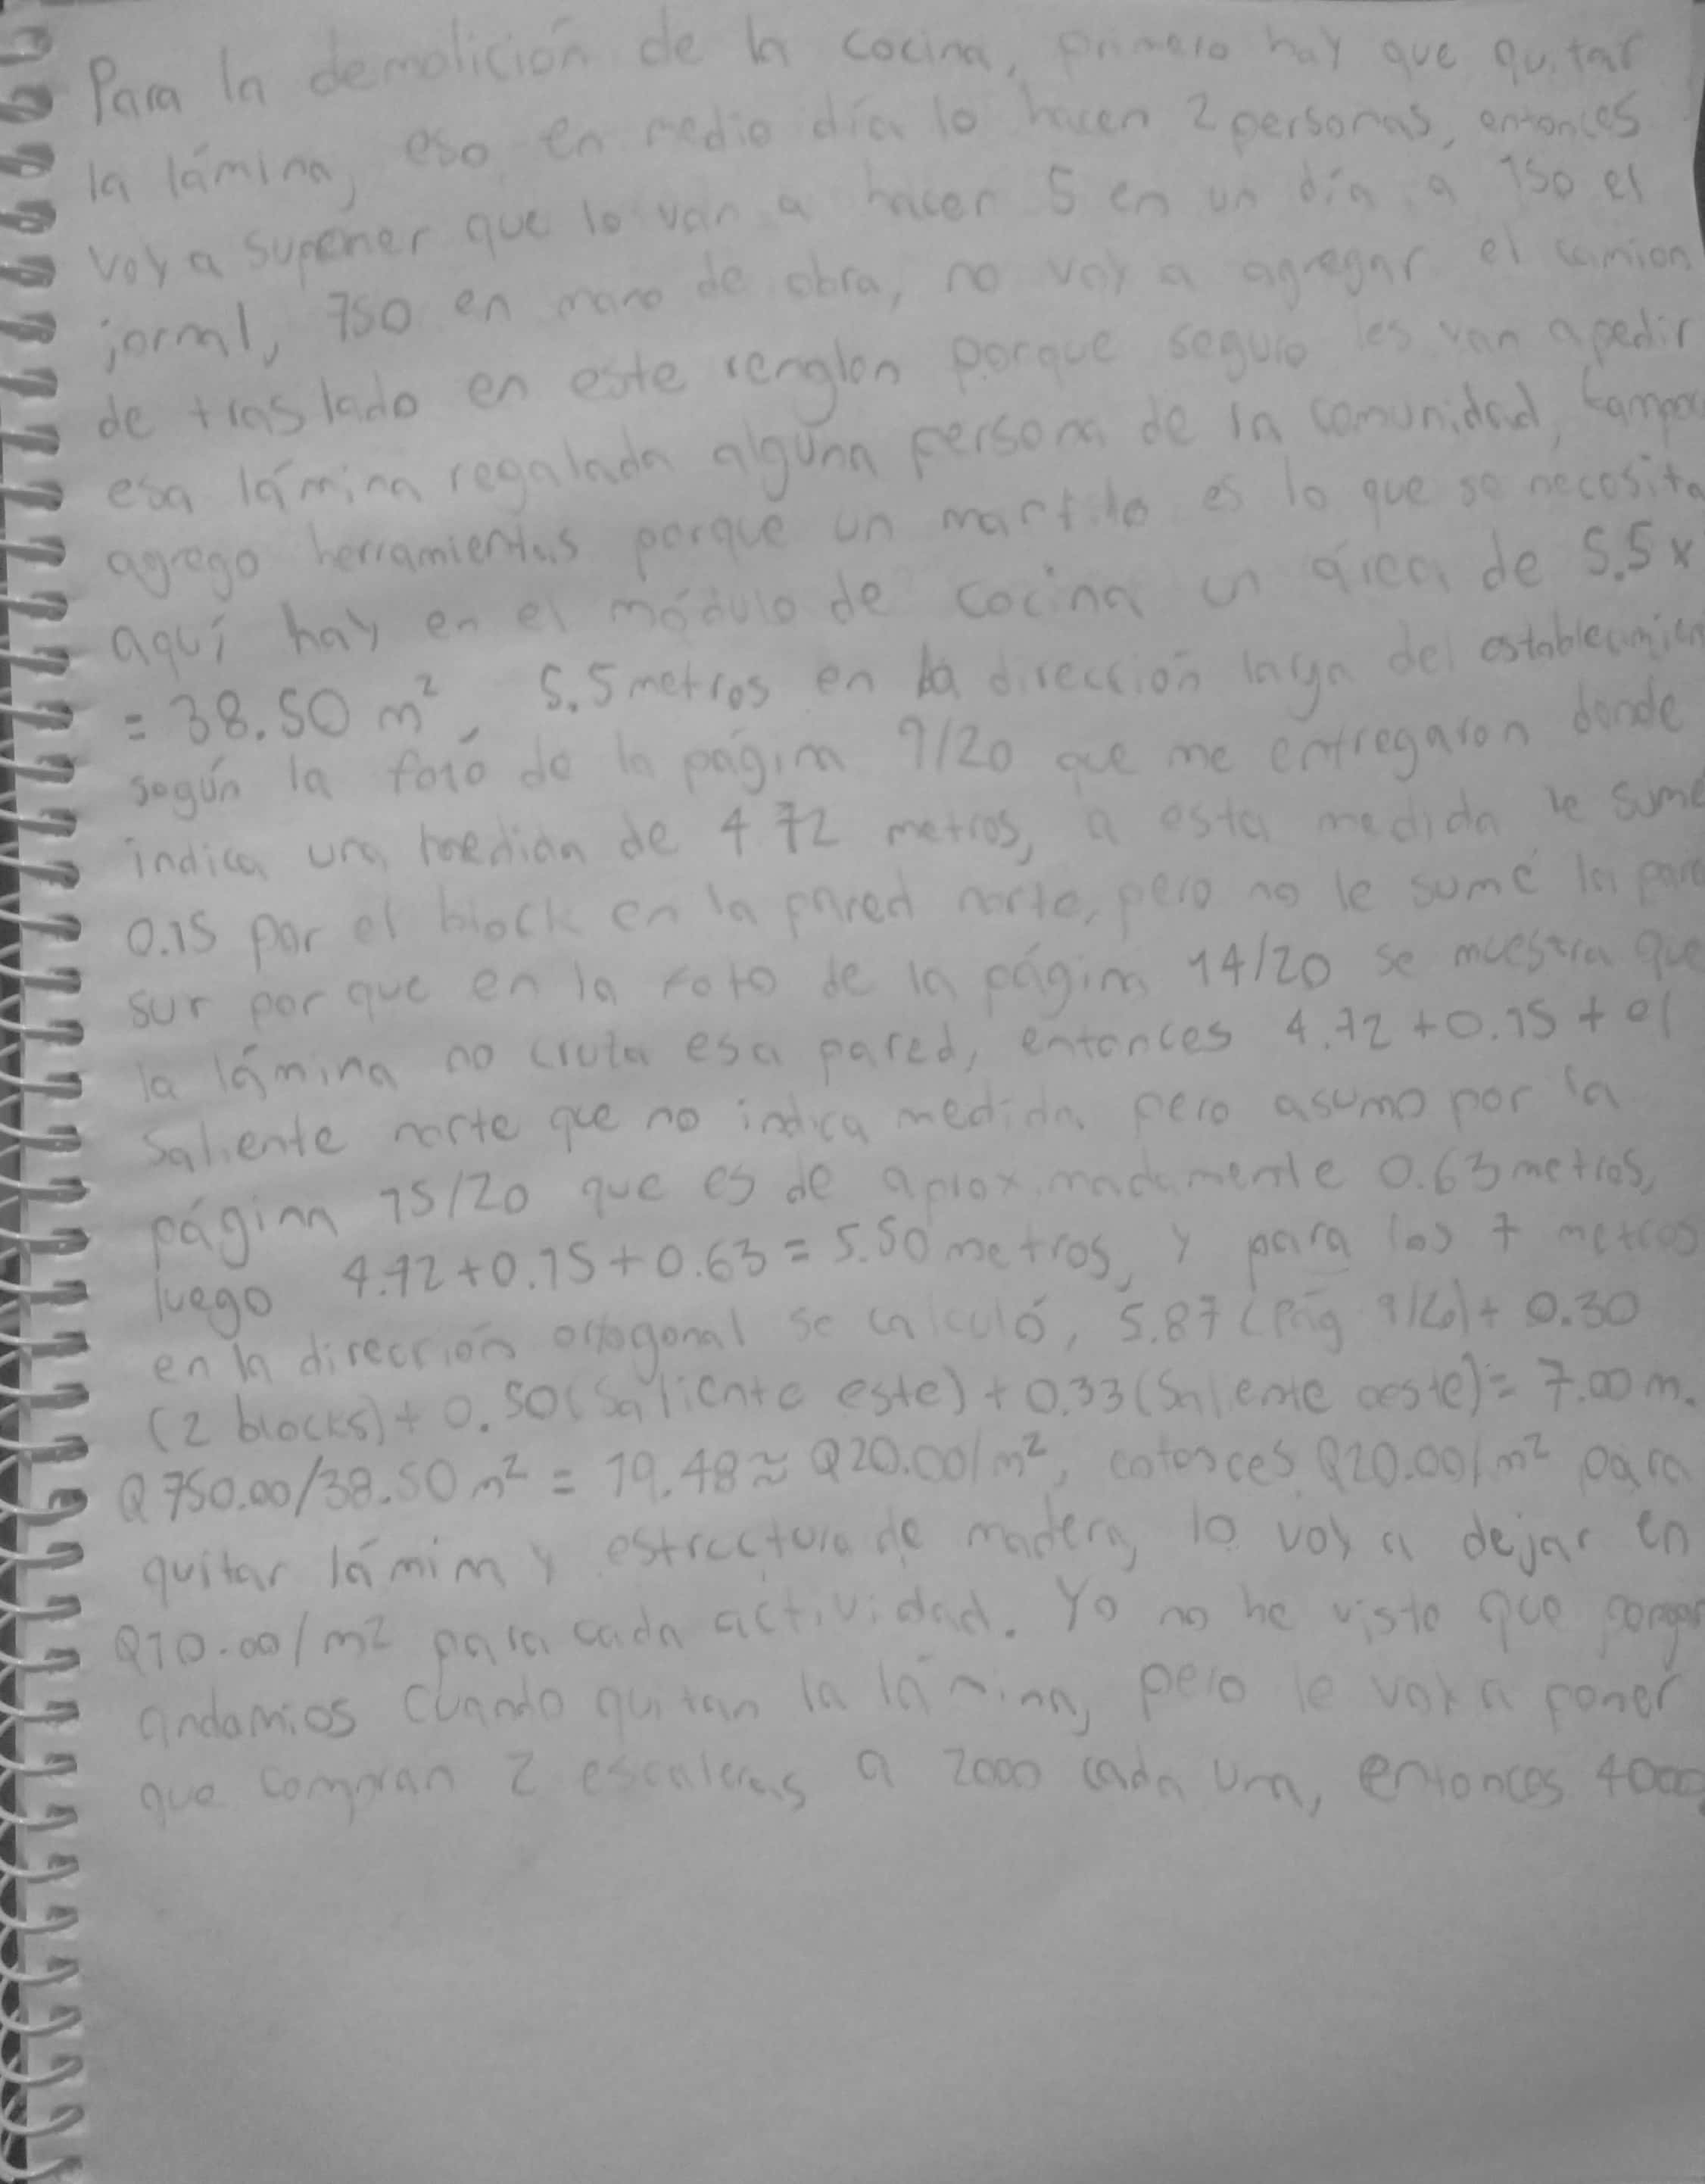 Para la demolición de la cocina, primero hay que quitar
la lámina, eso en medio día lo hacen 2 personas, entonces
voy a suponer que lo van a hacer 5 en un día a 150 el
jornal, 750 en mano de obra, no voy a agregar el camion
de traslado en este renglon porque seguro les van a pedir
esa lámina regalada alguna persona de la comunidad, tampoc
agrego herramientas porque un martillo es lo que se necesita
aquí hay en el módulo de cocina un área de 5.5 x
= 38.50 m², 5.5 metros en la dirección larga del establecimien
según la foto de la página 9/20 que me entregaron donde
indica una medida de 4.72 metros, a esta medida le sume
0.15 por el block en la pared norte, pero no le sumé la pared
sur por que en la foto de la página 14/20 se muestra que
la lámina no cruza esa pared, entonces 4.72 + 0.15 + el
saliente norte que no indica medida pero asumo por la
página 15/20 que es de aproximadamente 0.63 metros,
luego 4.72 + 0.15 + 0.63 = 5.50 metros, y para los 7 metros
en la dirección ortogonal se calculó, 5.87 (pág 9/20) + 0.30
(2 blocks) + 0.50 (saliente este) + 0.33 (saliente oeste) = 7.00 m.
Q 750.00/38.50 m² = 19.48 ≈ Q20.00/m², entonces Q20.00/m² para
quitar lámina y estructura de madera, lo voy a dejar en
Q10.00/m² para cada actividad. Yo no he visto que pongan
andamios cuando quitan la lámina, pero le voy a poner
que compran 2 escaleras a 2000 cada una, entonces 4000